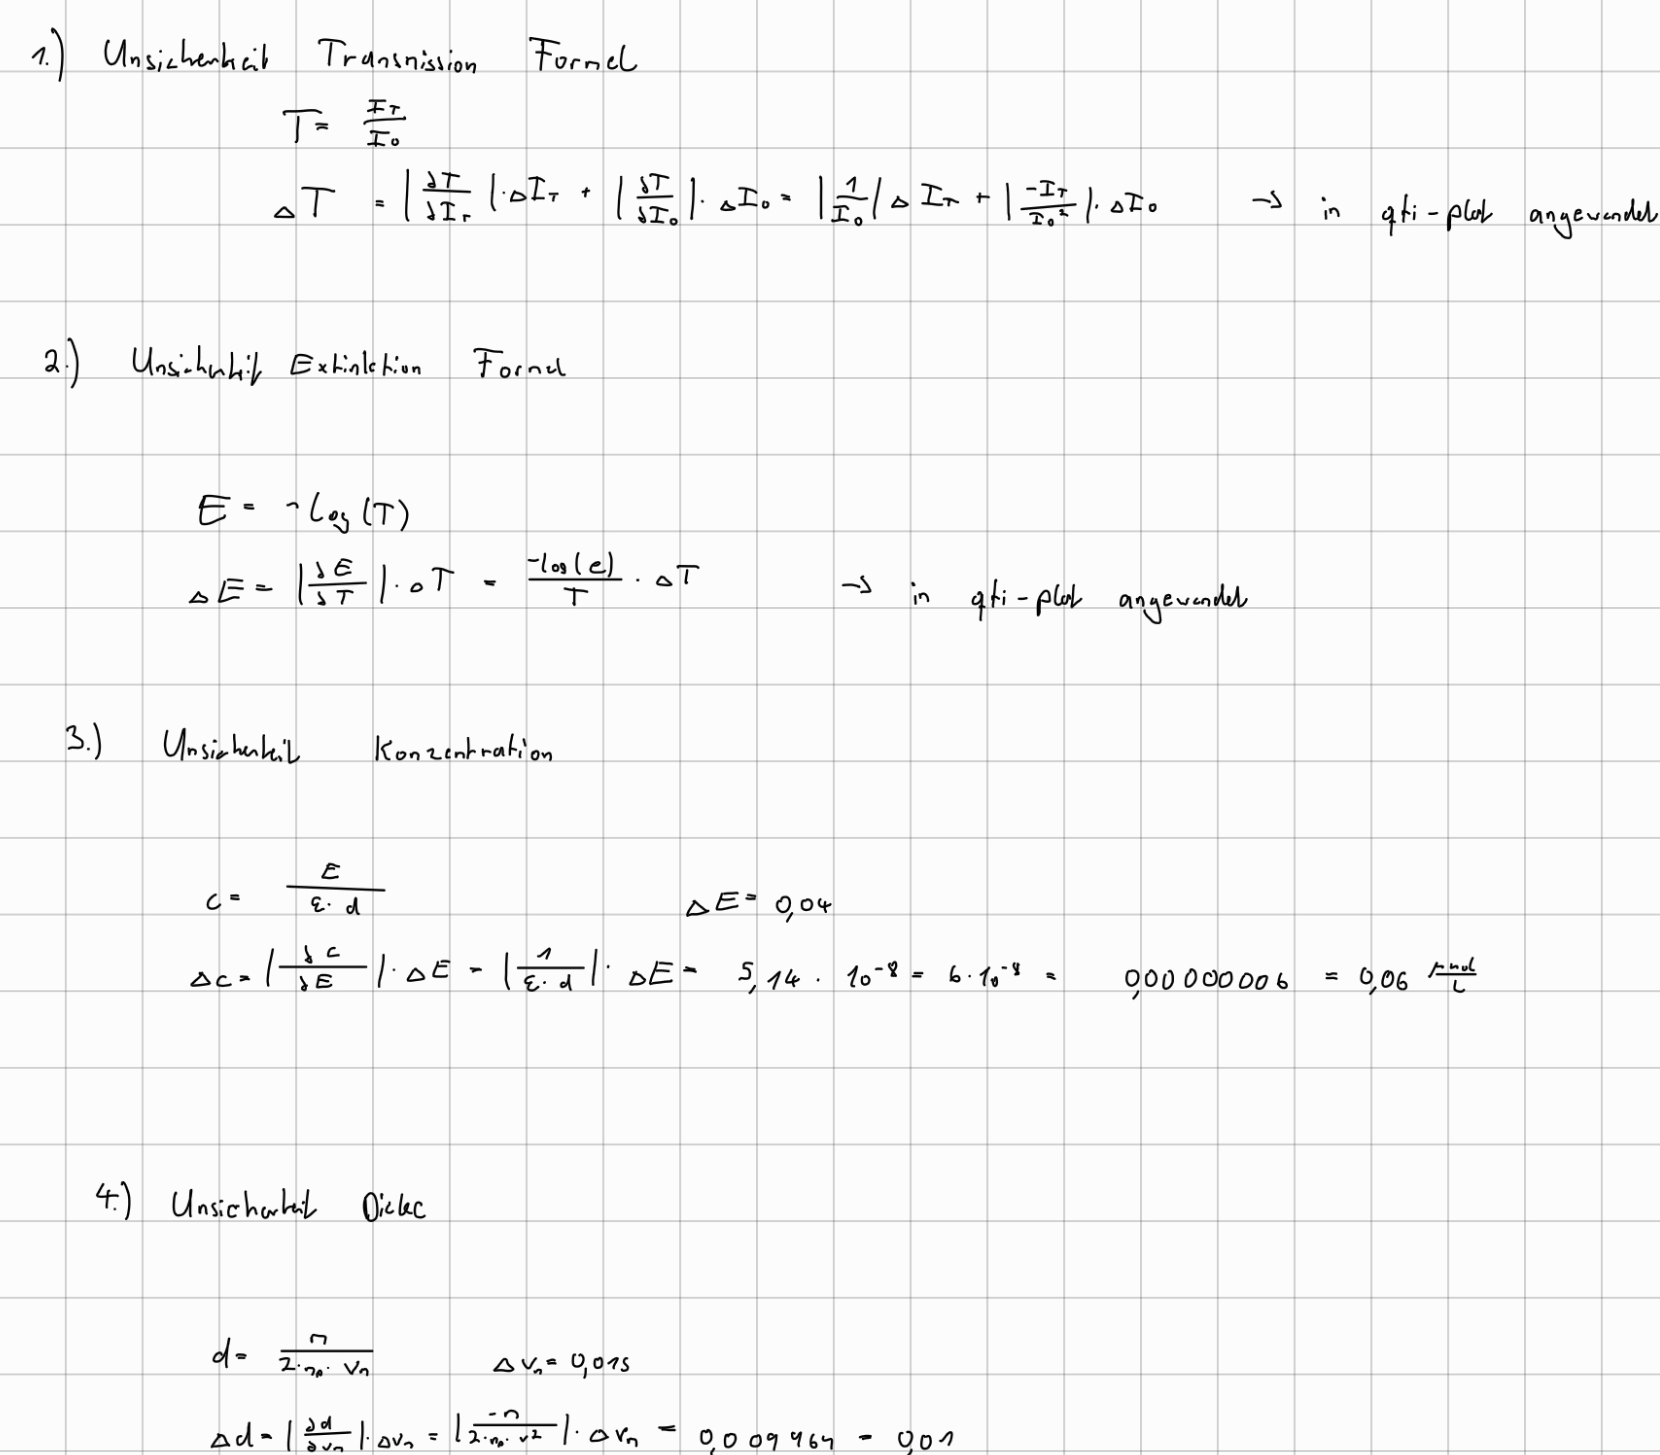 1.) Unsicherheit Transmission Formel
T = I_T / I_0
ΔT = |∂T/∂I_T| · ΔI_T + |∂T/∂I_0| · ΔI_0 = |1/I_0| ΔI_T + |-I_T/I_0²| · ΔI_0 → in qti-plot angewendet
2.) Unsicherheit Extinktion Formel
E = -log(T)
ΔE = |∂E/∂T| · ΔT = -log(e)/T · ΔT → in qti-plot angewendet
3.) Unsicherheit Konzentration
c = E / (ε · d) ΔE = 0,04
Δc = |∂c/∂E| · ΔE = |1/(ε · d)| · ΔE = 5,14 · 10⁻⁸ = 6 · 10⁻⁸ = 0,00000006 = 0,06 µmol/L
4.) Unsicherheit Dicke
d = n / (2 · n_p · v_n) Δv_n = 0,015
Δd = |∂d/∂v_n| · Δv_n = |-n/(2 · n_p · v²)| · Δv_n = 0,009464 = 0,01